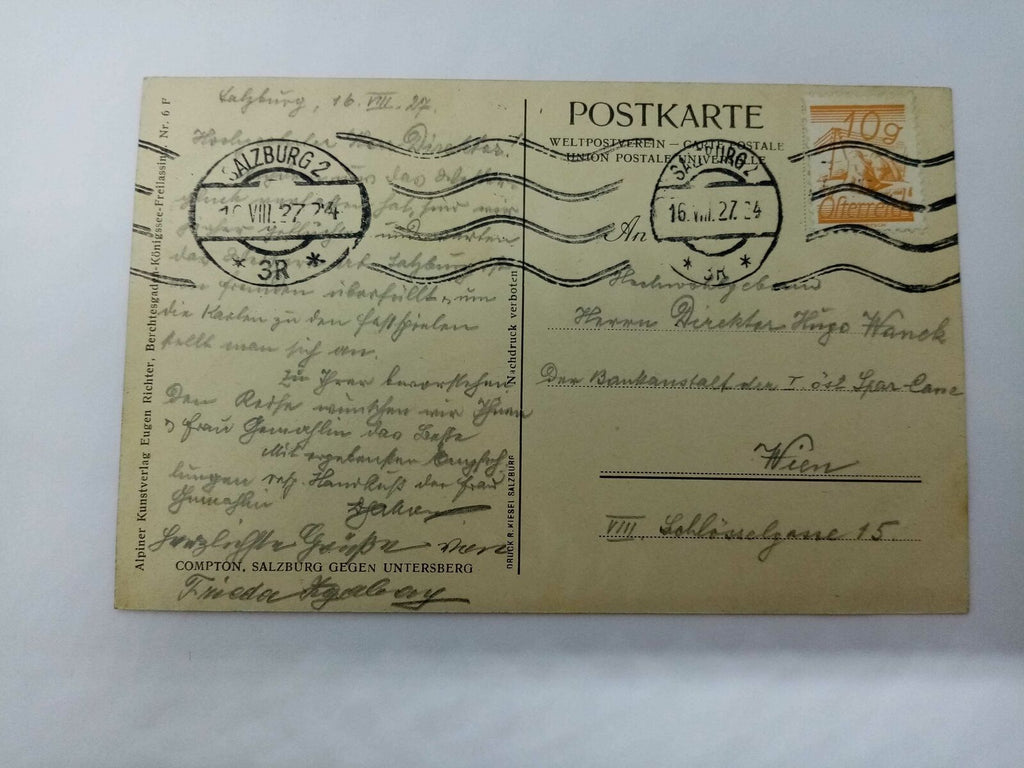 Salzburg, 16. VIII. 27.
Herr Direktor!
das
hat, sind wir
und
das Salzburg
Fremden überfüllt, um
die Karten zu den Festspielen
stellt man sich an.
Zu Ihrer bevorstehen
den Reise wünschen wir Ihnen
Frau Gemahlin das Beste
Mit ergebensten Empfeh
lungen resp. Handkuß der Frau
Gemahlin
Herzlichste Grüße von
Frieda
COMPTON, SALZBURG GEGEN UNTERSBERG
Alpiner Kunstverlag Eugen Richter, Berchtesgaden-Königssee-Freilassing Nr. 6 F
Nachdruck verboten
DRUCK R. KIESEL SALZBURG
SALZBURG 2
16 VIII. 27. 24
* 3R *
POSTKARTE
WELTPOSTVEREIN — CARTE POSTALE
UNION POSTALE UNIVERSELLE
SALZBURG 2
16. VIII. 27. 24
* 3R *
10g
Österreich
An
Hochwohlgeboren
Herrn Direktor Hugo Wanek
Der Bankanstalt der I öst Spar Casse
Wien
VIII. Schlösselgasse 15.